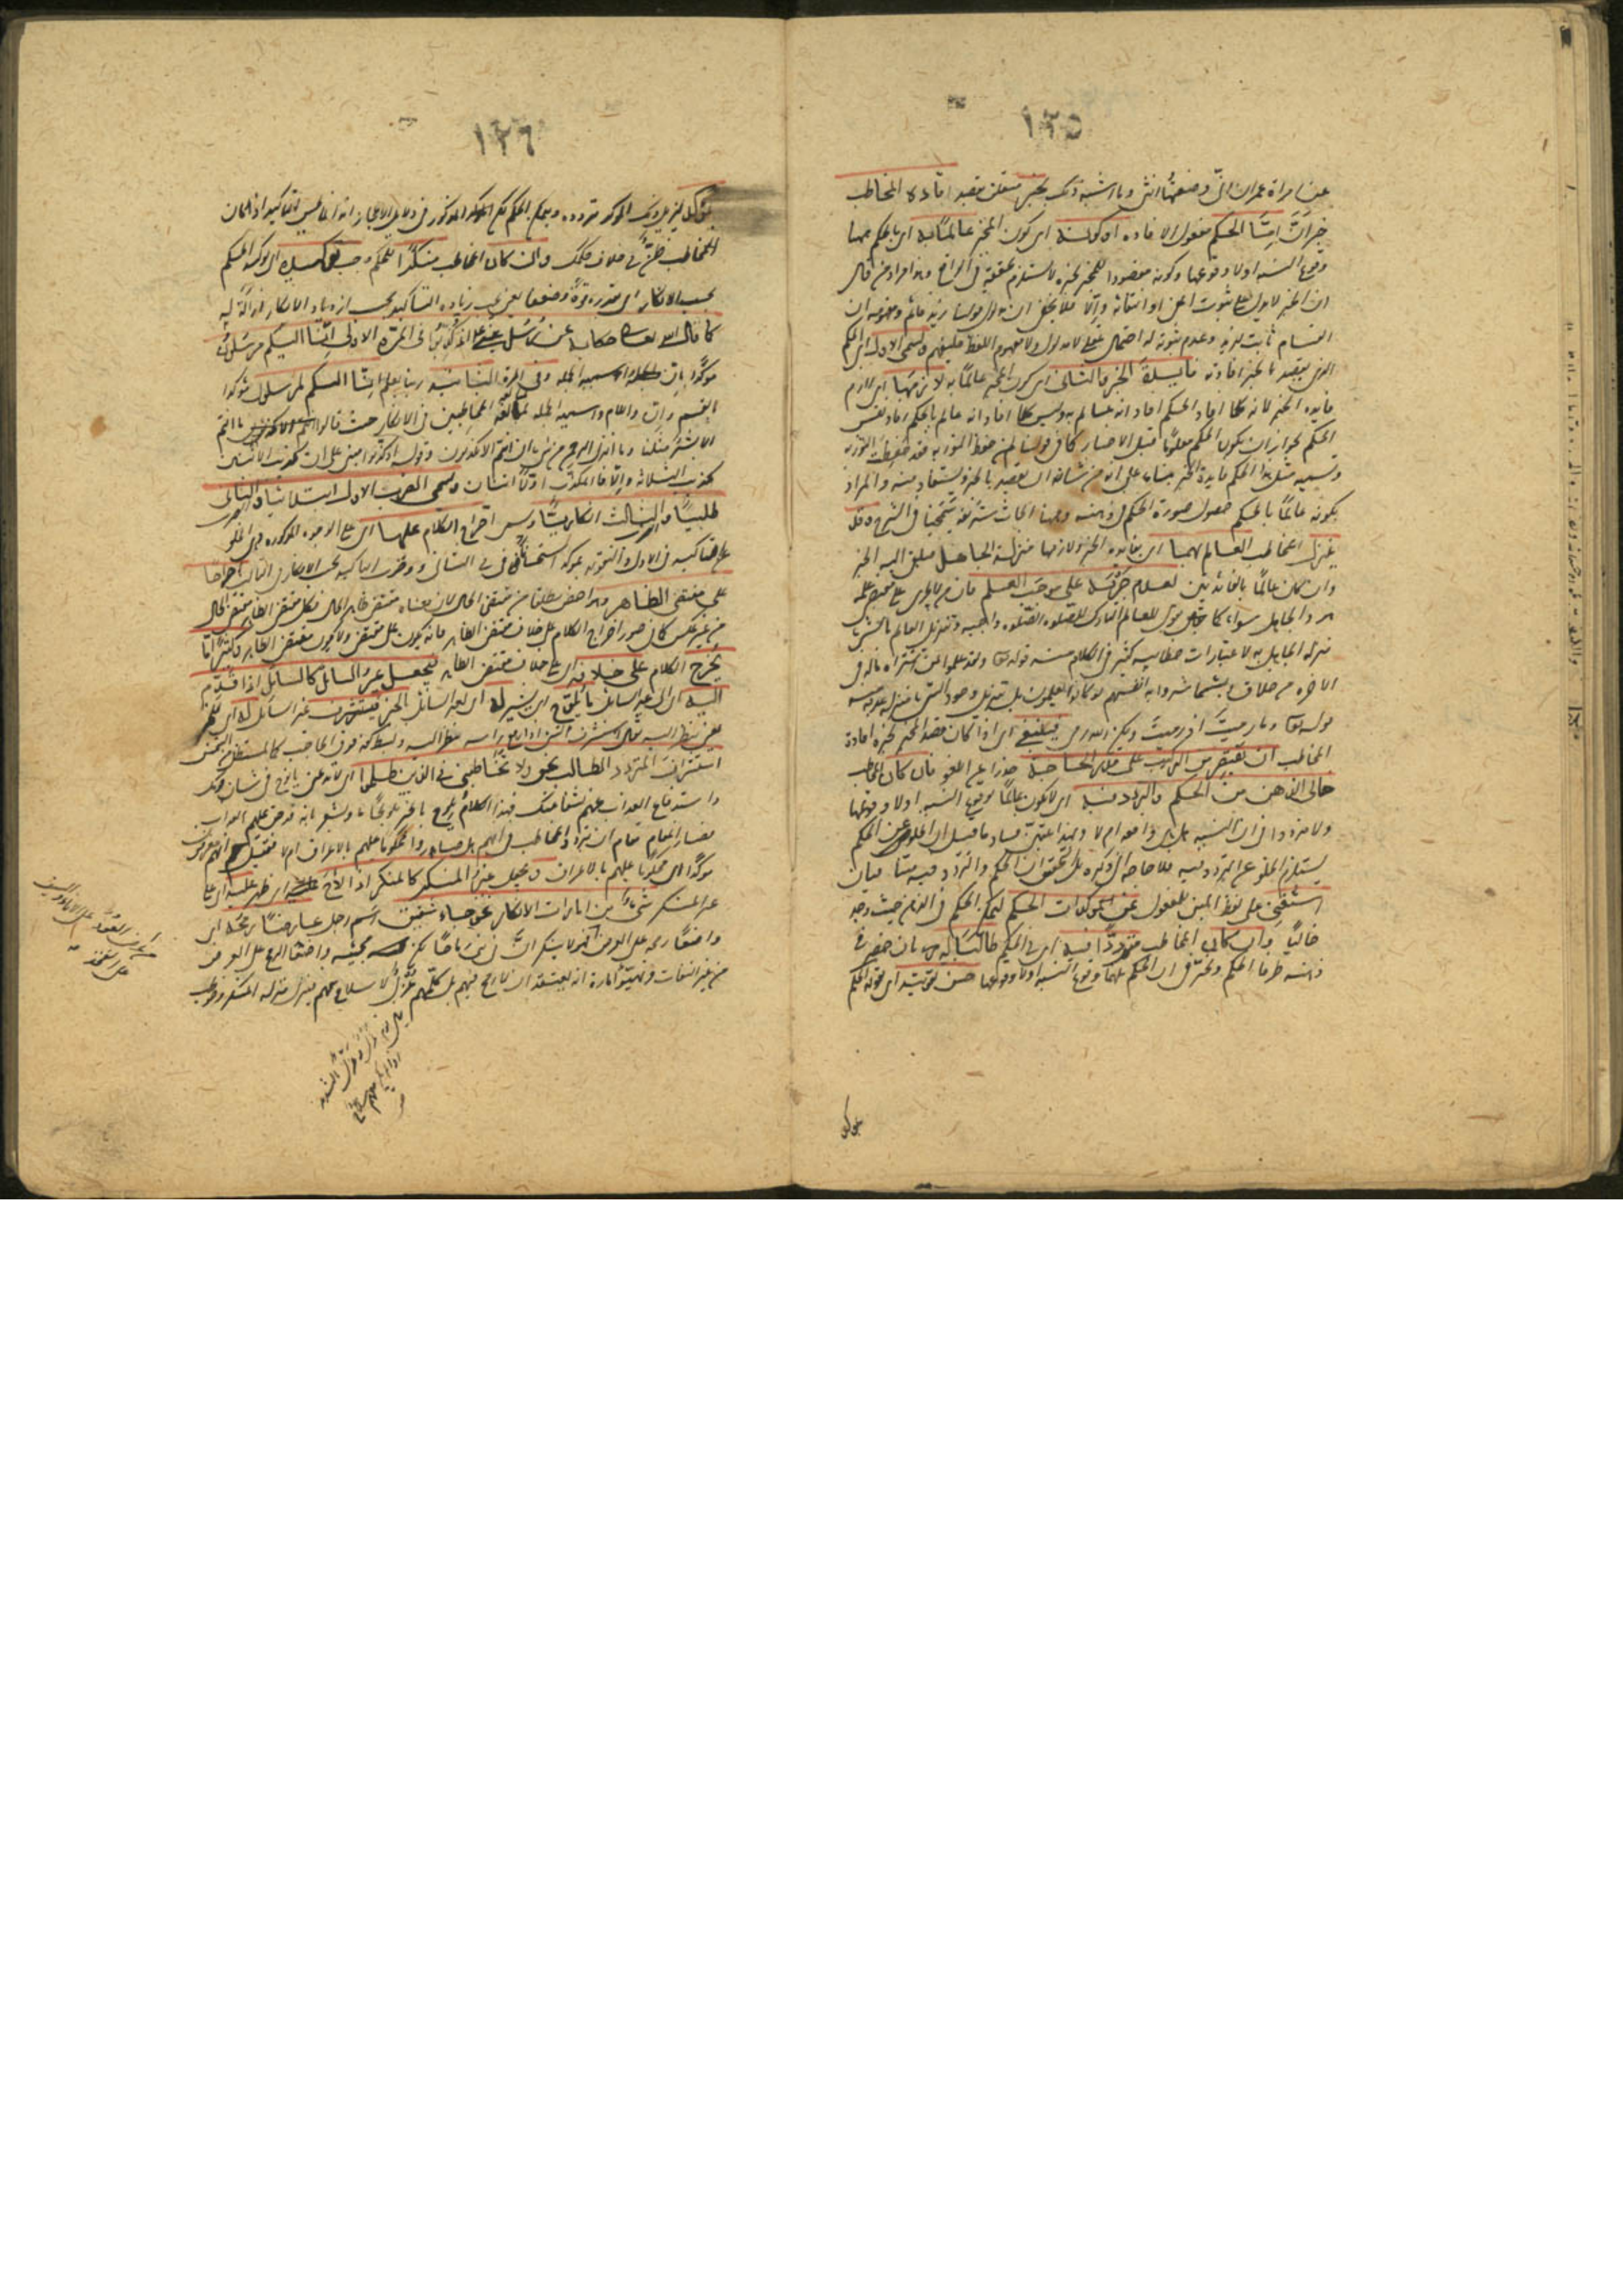 ١٢٥
عن امرأة عمران انى وضعتها انثى وما اشبه ذلك بخبره متعلق بقصد افادة المخاطب
خبر ان اما الحكم مفعول الافادة او كونه اى كون المخبر عالما به اى بالحكم
وقوع النسبة اولا وقوعها وكونه مقصودا للمخبر بخبره لا يستلزم تحققه فى الواقع وهذا مراد من قال
ان الخبر لا يدل على ثبوت المعنى او انتفائه والا فلا يخفى ان مدلول قولنا زيد قائم ومفهومه ان
القيام ثابت لزيد وعدم ثبوته له احتمال عقلى لا مدلول ولا مفهوم اللفظ فليفهم ويسمى الاول اى الحكم
الذى يقصد بالخبر افادته فائدة الخبر والثانى اى كون المخبر عالما به لازمها اى لازم
فائدة الخبر لانه كلما افاد الحكم افاد انه عالم به وليس كلما افاد انه عالم بالحكم افاد نفس
الحكم لجواز ان يكون الحكم معلوما قبل الاخبار كما فى قولنا لمن حفظ التورية قد حفظت التورية
وتسمية مثل هذا الحكم فائدة الخبر بناء على انه من شانه ان يقصد بالخبر ويستفاد منه والمراد
بكونه عالما بالحكم حصول صورة الحكم فى ذهنه وههنا ابحاث شريفة سمحنا بها فى الشرح وقد
ينزل المخاطب العالم بهما اى بفائدة الخبر ولازمها منزلة الجاهل فيلقى اليه الخبر
وان كان عالما بالفائدتين لعدم جريه على موجب العلم فان من لا يجرى على مقتضى علمه
هو والجاهل سواء كما يقال للعالم التارك للصلوة الصلوة واجبة وتنزيل العالم بالشئ
منزلة الجاهل به لاعتبارات خطابية كثير فى الكلام منه قوله تعالى ولقد علموا لمن اشتراه ماله فى
الاخرة من خلاق ولبئس ما شروا به انفسهم لو كانوا يعلمون بل تنزيل وجود الشئ منزلة عدمه منه
قوله تعالى وما رميت اذ رميت ولكن الله رمى فينبغى اى اذا كان قصد المخبر بخبره افادة
المخاطب ان يقتصر من التركيب على قدر الحاجة حذرا عن اللغو فان كان المخاطب
خالى الذهن من الحكم والتردد فيه اى لا يكون عالما بوقوع النسبة اولا وقوعها
ولا مترددا فى ان النسبة هل هى واقعة ام لا وبهذا تبين فساد ما قيل ان الخلو عن الحكم
يستلزم الخلو عن التردد فيه فلا حاجة الى ذكره بل التحقيق ان الحكم والتردد فيه متنافيان
استغنى على لفظ المبنى للمفعول عن مؤكدات الحكم لتمكن الحكم فى الذهن حيث وجده
خاليا وان كان المخاطب مترددا فيه اى فى الحكم طالبا له بان حضر فى
ذهنه طرفا الحكم وتحير فى ان الحكم بينهما وقوع النسبة اولا وقوعها حسن تقويته اى تقوية الحكم
بمؤكد
١٢٦
بمؤكد ليزيل ذلك المؤكد تردده ويتمكن الحكم لكن المذكور فى دلائل الاعجاز انه انما يحسن التاكيد اذا كان
للمخاطب ظن فى خلاف حكمك وان كان المخاطب منكرا للحكم وجب توكيده اى توكيد الحكم
بحسب الانكار اى بقدره قوة وضعفا يعنى يجب زيادة التاكيد بحسب ازدياد الانكار ازالة له
كما قال الله تعالى حكاية عن رسل عيسى عليه السلام اذ كذبوا فى المرة الاولى انا اليكم مرسلون
مؤكدا بان واسمية الجملة وفى المرة الثانية ربنا يعلم انا اليكم لمرسلون مؤكدا
بالقسم وان واللام واسمية الجملة لمبالغة المخاطبين فى الانكار حيث قالوا ما انتم
الا بشر مثلنا وما انزل الرحمن من شئ ان انتم الا تكذبون وقوله اذ كذبوا مبنى على ان تكذيب الاثنين
تكذيب الثلاثة والا فالمكذب اولا اثنان ويسمى الضرب الاول ابتدائيا والثانى
طلبيا والثالث انكاريا ويسمى اخراج الكلام عليها اى على الوجوه المذكورة وهى الخلو
عن التاكيد فى الاول والتقوية بمؤكد استحسانا فى الثانى ووجوب التاكيد بحسب الانكار فى الثالث اخراجا
على مقتضى الظاهر وهو اخص مطلقا من مقتضى الحال لان معناه مقتضى ظاهر الحال فكل مقتضى الظاهر مقتضى الحال
من غير عكس كما فى صور اخراج الكلام على خلاف مقتضى الظاهر فانه يكون على مقتضى الحال ولا يكون على مقتضى الظاهر وكثيرا ما
يخرج الكلام على خلافه اى على خلاف مقتضى الظاهر فيجعل غير السائل كالسائل اذا قدم
اليه اى الى غير السائل ما يلوح اى يشير له اى لغير السائل بالخبر فيستشرف غير السائل له اى للخبر
يعنى ينظر اليه يقال استشرف الشئ اذا رفع راسه ينظر اليه وبسط كفه فوق الحاجب كالمستظل من الشمس
استشراف المتردد الطالب نحو ولا تخاطبنى فى الذين ظلموا اى لا تدعنى يا نوح فى شان قومك
واستدفاع العذاب عنهم بشفاعتك فهذا الكلام يلوح بالخبر تلويحا ما ويشعر بانه قد حق عليهم العذاب
فصار المقام مقام ان يتردد المخاطب فى انهم هل صاروا محكوما عليهم بالاغراق ام لا فقيل انهم مغرقون
مؤكدا اى محكوما عليهم بالاغراق ويجعل غير المنكر كالمنكر اذا لاح اى ظهر عليه اى على
غير المنكر شئ من امارات الانكار نحو جاء شقيق اسم رجل عارضا رمحه اى
واضعا رمحه على العرض فهو لا ينكر ان فى بنى عمه رماحا لكن مجيئه واضعا الرمح على العرض
من غير التفات وتهيؤ امارة انه يعتقد ان لا رمح فيهم بل كلهم عزل لا سلاح معهم فنزل منزلة المنكر وخوطب